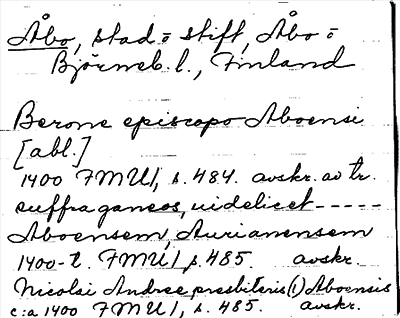 Åbo, stad = stift, Åbo =
Björneb. l., Finland
Berone episcopo Aboensi
[abl.]
1400 FMU1, s. 484. avskr. av tr.
suffraganeos, uidelicet -----
Aboensem, Aurianensem
1400-t. FMU1, s. 485. avskr.
Nicolai Andree presbiteris (!) Aboensis
c:a 1400 FMU1, s. 485. avskr.